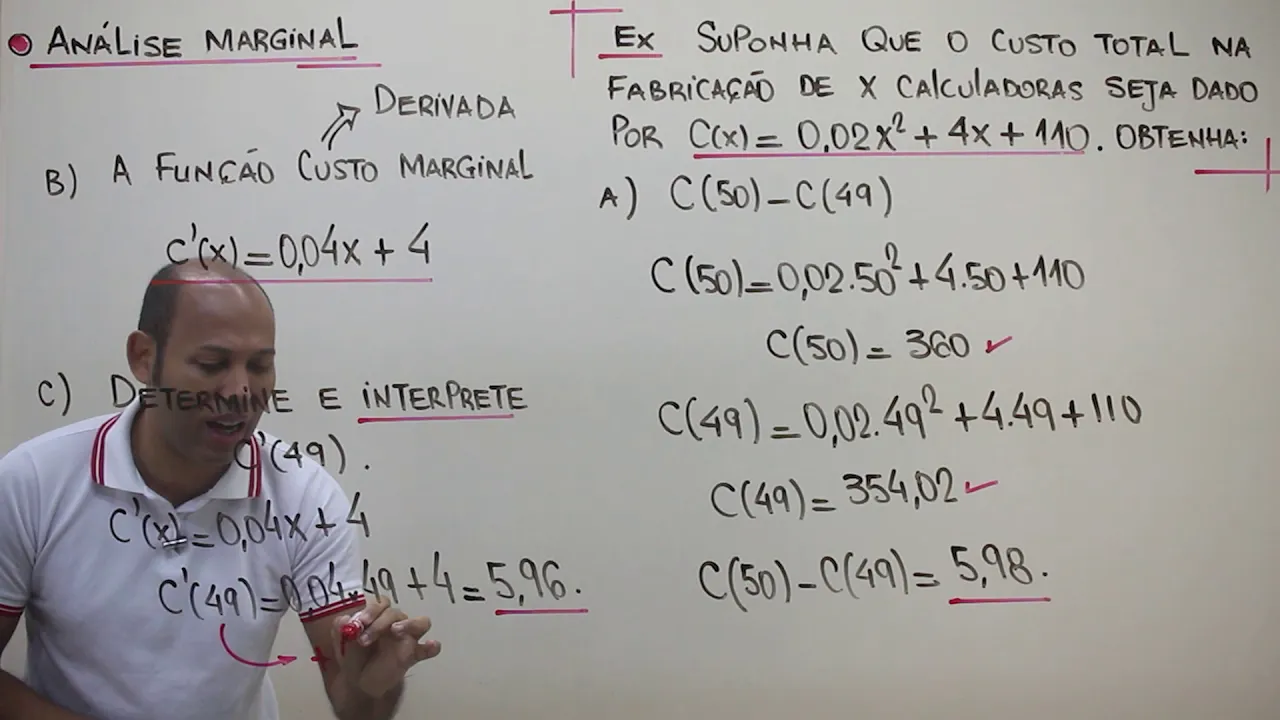 ANÁLISE MARGINAL
DERIVADA
B) A FUNÇÃO CUSTO MARGINAL
C'(x) = 0,04x + 4
C) DETERMINE E INTERPRETE
C'(49).
C'(x) = 0,04x + 4
C'(49) = 0,04.49 + 4 = 5,96.
+
Ex SUPONHA QUE O CUSTO TOTAL NA
FABRICAÇÃO DE X CALCULADORAS SEJA DADO
POR C(x) = 0,02x² + 4x + 110. OBTENHA:
A) C(50) - C(49)
C(50) = 0,02.50² + 4.50 + 110
C(50) = 360 ✓
C(49) = 0,02.49² + 4.49 + 110
C(49) = 354,02 ✓
C(50) - C(49) = 5,98.